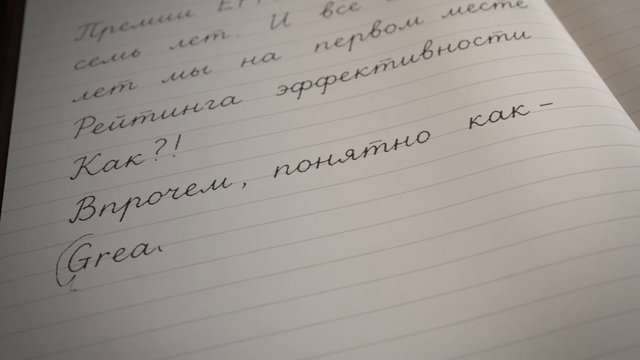 Премии
семь лет. И все
лет мы на первом месте
Рейтинга эффективности
Как?!
Впрочем, понятно как –
Grea